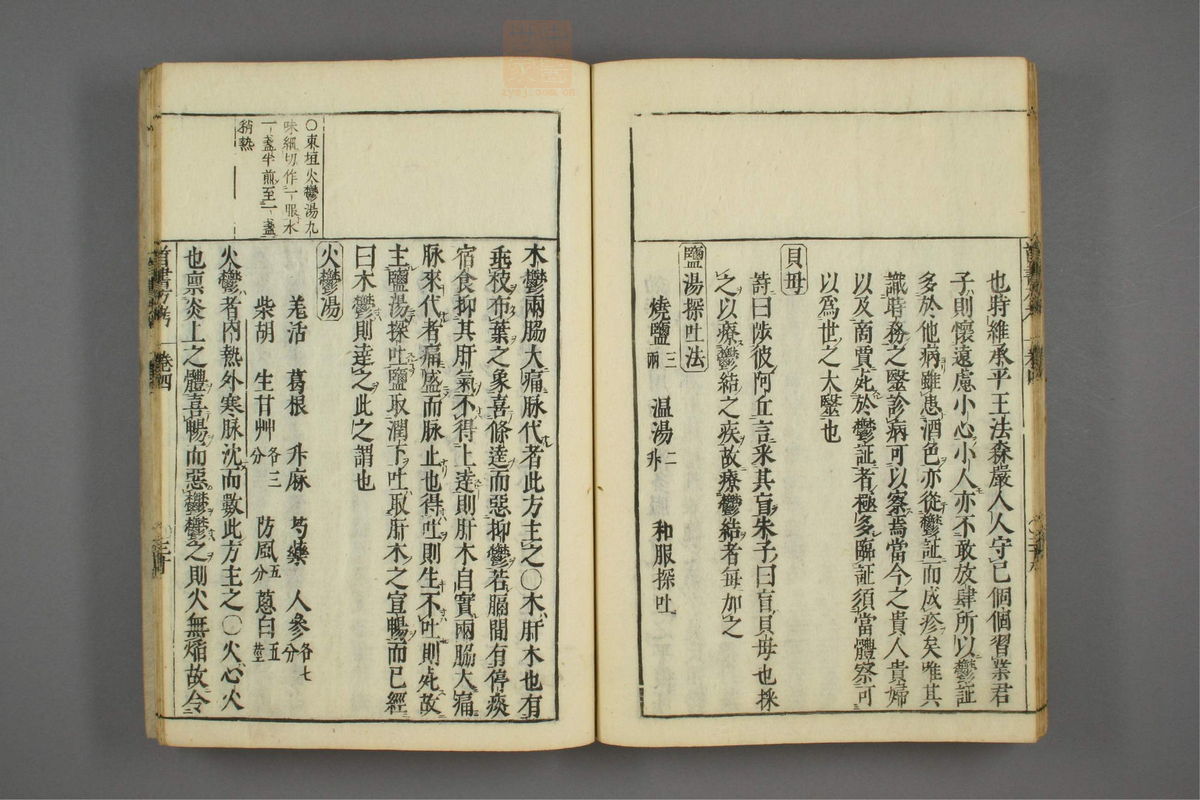 也時維承平王法森嚴人人守己個個習業君
子則懷遠慮小心小人亦不敢放肆所以鬱証
多於他病雖患酒色亦從鬱証而成疹矣唯其
識時務之毉診病可以察焉當今之貴人貴婦
以及商賈死於鬱証者極多臨証須當體察可
以為世之大毉也
貝母
詩曰陟彼阿丘言采其䖟朱子曰䖟貝母也採
之以療鬱結之疾故療鬱結者每加之
鹽湯探吐法
燒鹽三兩 温湯二升 和服探吐
木鬱兩脇大痛脉代者此方主之〇木肝木也有
垂枝布葉之象喜條達而惡抑鬱若膈間有停痰
宿食抑其肝氣不得上達則肝木自實兩脇大痛
脉來代者痛盛而脉止也得吐則生不吐則死故
主鹽湯探吐鹽取潤下吐取肝木之宣暢而已經
曰木鬱則達之此之謂也
火鬱湯
〇東垣火鬱湯九
味細切作一服水
一盞半煎至一盞
稍熱
羌活 葛根 升麻 芍藥 人參各七分
柴胡 生甘艸各三分 防風五分 蔥白五莖
火鬱者内熱外寒脉沈而數此方主之〇火心火
也禀炎上之體喜暢而惡鬱鬱之則火無焰故令
卷四
zysj.com.cn